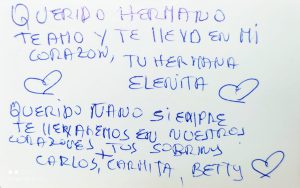 QUERIDO HERMANO
TE AMO Y TE LLEVO EN MI
CORAZON, TU HERMANA
ELENITA
QUERIDO ÑANO SIEMPRE
TE LLEVAREMOS EN NUESTROS
CORAZONES TUS SOBRINOS
CARLOS, CARMITA, BETTY